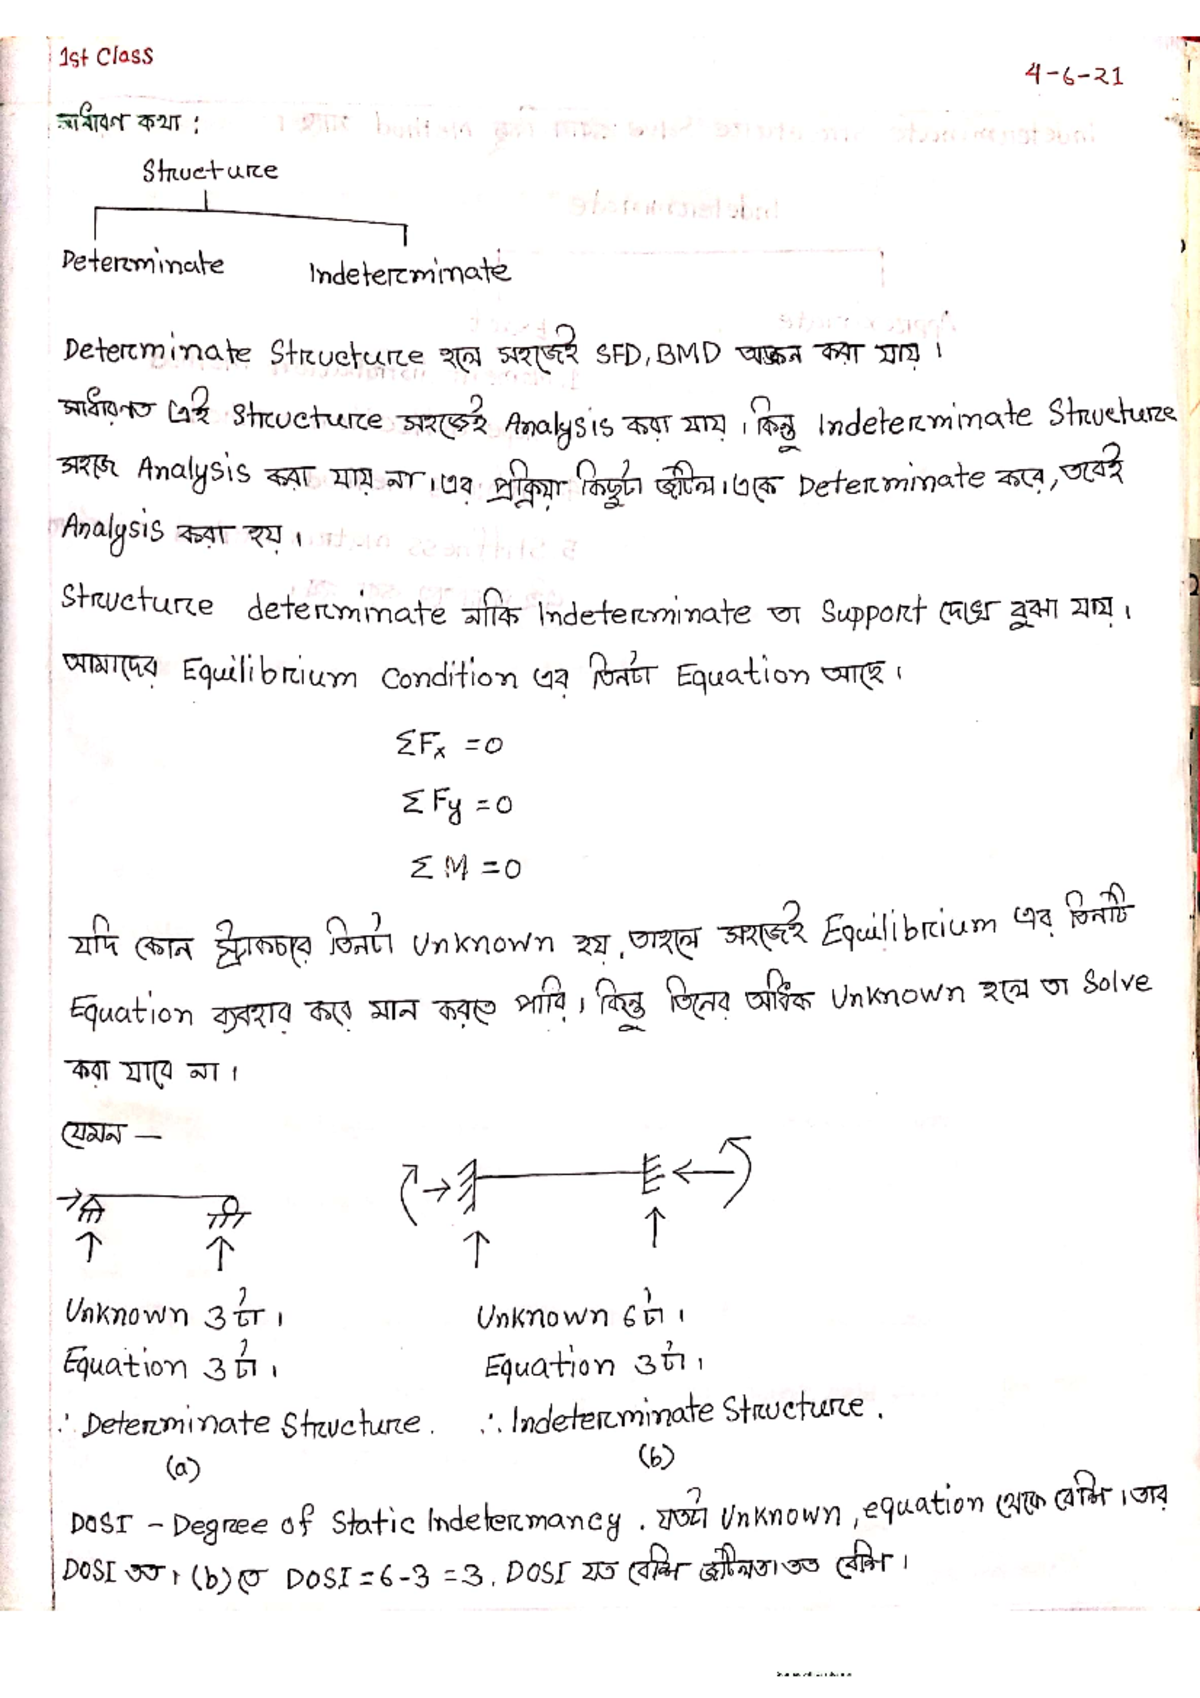 1st Class
4-6-21
সাধারণ কথা :
Structure
Determinate
Indeterminate
Determinate Structure হলে সহজেই SFD, BMD অঙ্কন করা যায়।
সাধারণত এই Structure সহজেই Analysis করা যায়। কিন্তু Indeterminate Structure
সহজে Analysis করা যায় না। এর প্রক্রিয়া কিছুটা জটিল। একে Determinate করে, তবেই
Analysis করা হয়।
Structure determinate নাকি Indeterminate তা Support দেখে বুঝা যায়।
আমাদের Equilibrium Condition এর তিনটা Equation আছে।
ΣFx = 0
ΣFy = 0
ΣM = 0
যদি কোন স্ট্রাকচারে তিনটা Unknown হয়, তাহলে সহজেই Equilibrium এর তিনটি
Equation ব্যবহার করে মান করতে পারি। কিন্তু তিনের অধিক Unknown হলে তা Solve
করা যাবে না।
যেমন —
Unknown 3 টা।
Unknown 6 টা।
Equation 3 টা।
Equation 3 টা।
∴ Determinate Structure.
∴ Indeterminate Structure.
(a)
(b)
DOSI - Degree of Static Indetermancy. যতটা Unknown, equation থেকে বেশি। তার
DOSI তত। (b) তে DOSI = 6-3 = 3. DOSI যত বেশি জটিলতা তত বেশি।